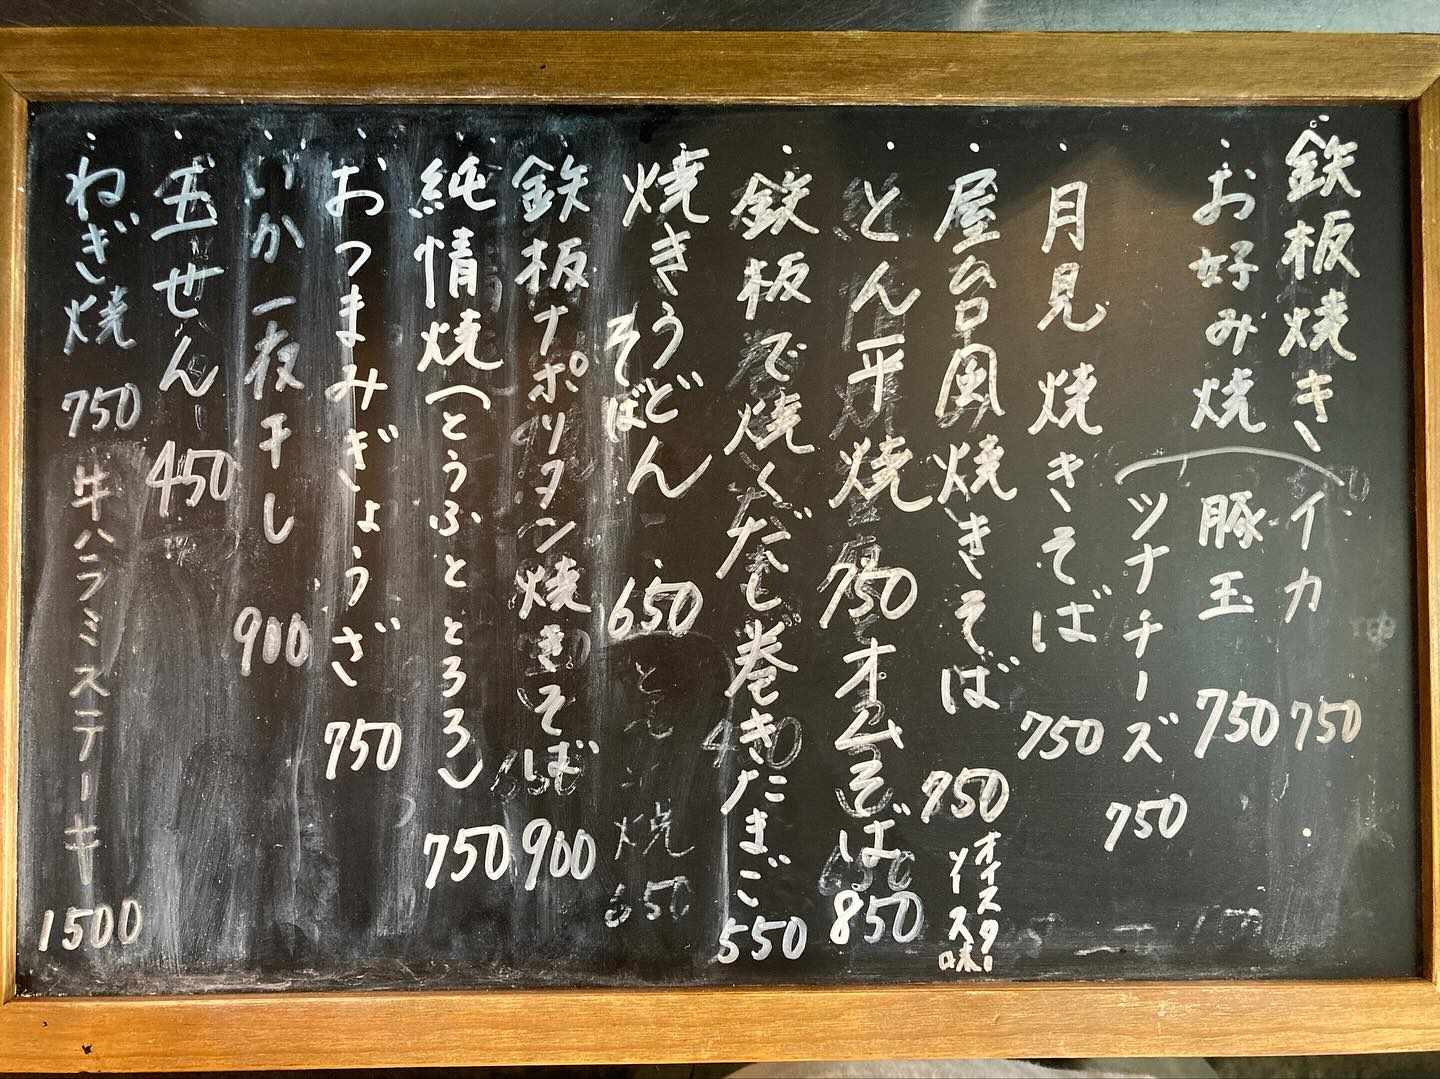 鉄板焼き イカ 750
お好み焼 豚玉 750
ツナチーズ 750
月見焼きそば 750
屋台風焼きそば 750
オイスター
ソース味
とん平焼 750 オムそば 850
鉄板で焼くだし巻きたまご 550
焼きうどん 650
そば
鉄板ナポリタン焼きそば 900
純情焼(とうふととろろ) 750
おつまみぎょうざ 750
いか一夜干し 900
玉せん 450
ねぎ焼 750
牛ハラミステーキ 1500